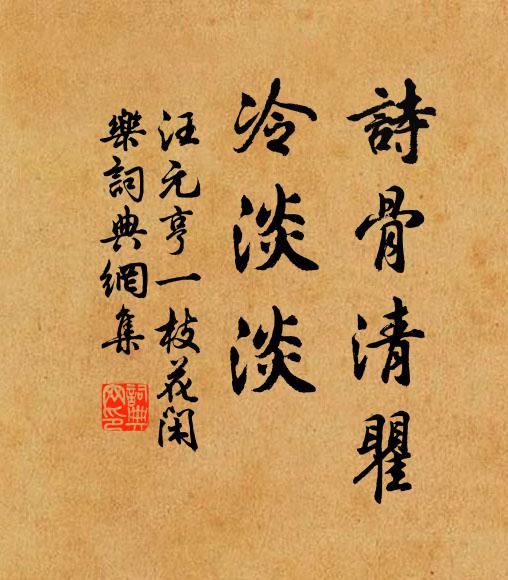 詩骨清瞿
冷淡淡
汪元亨一枝花閑
樂詞典網集
詞典
网印